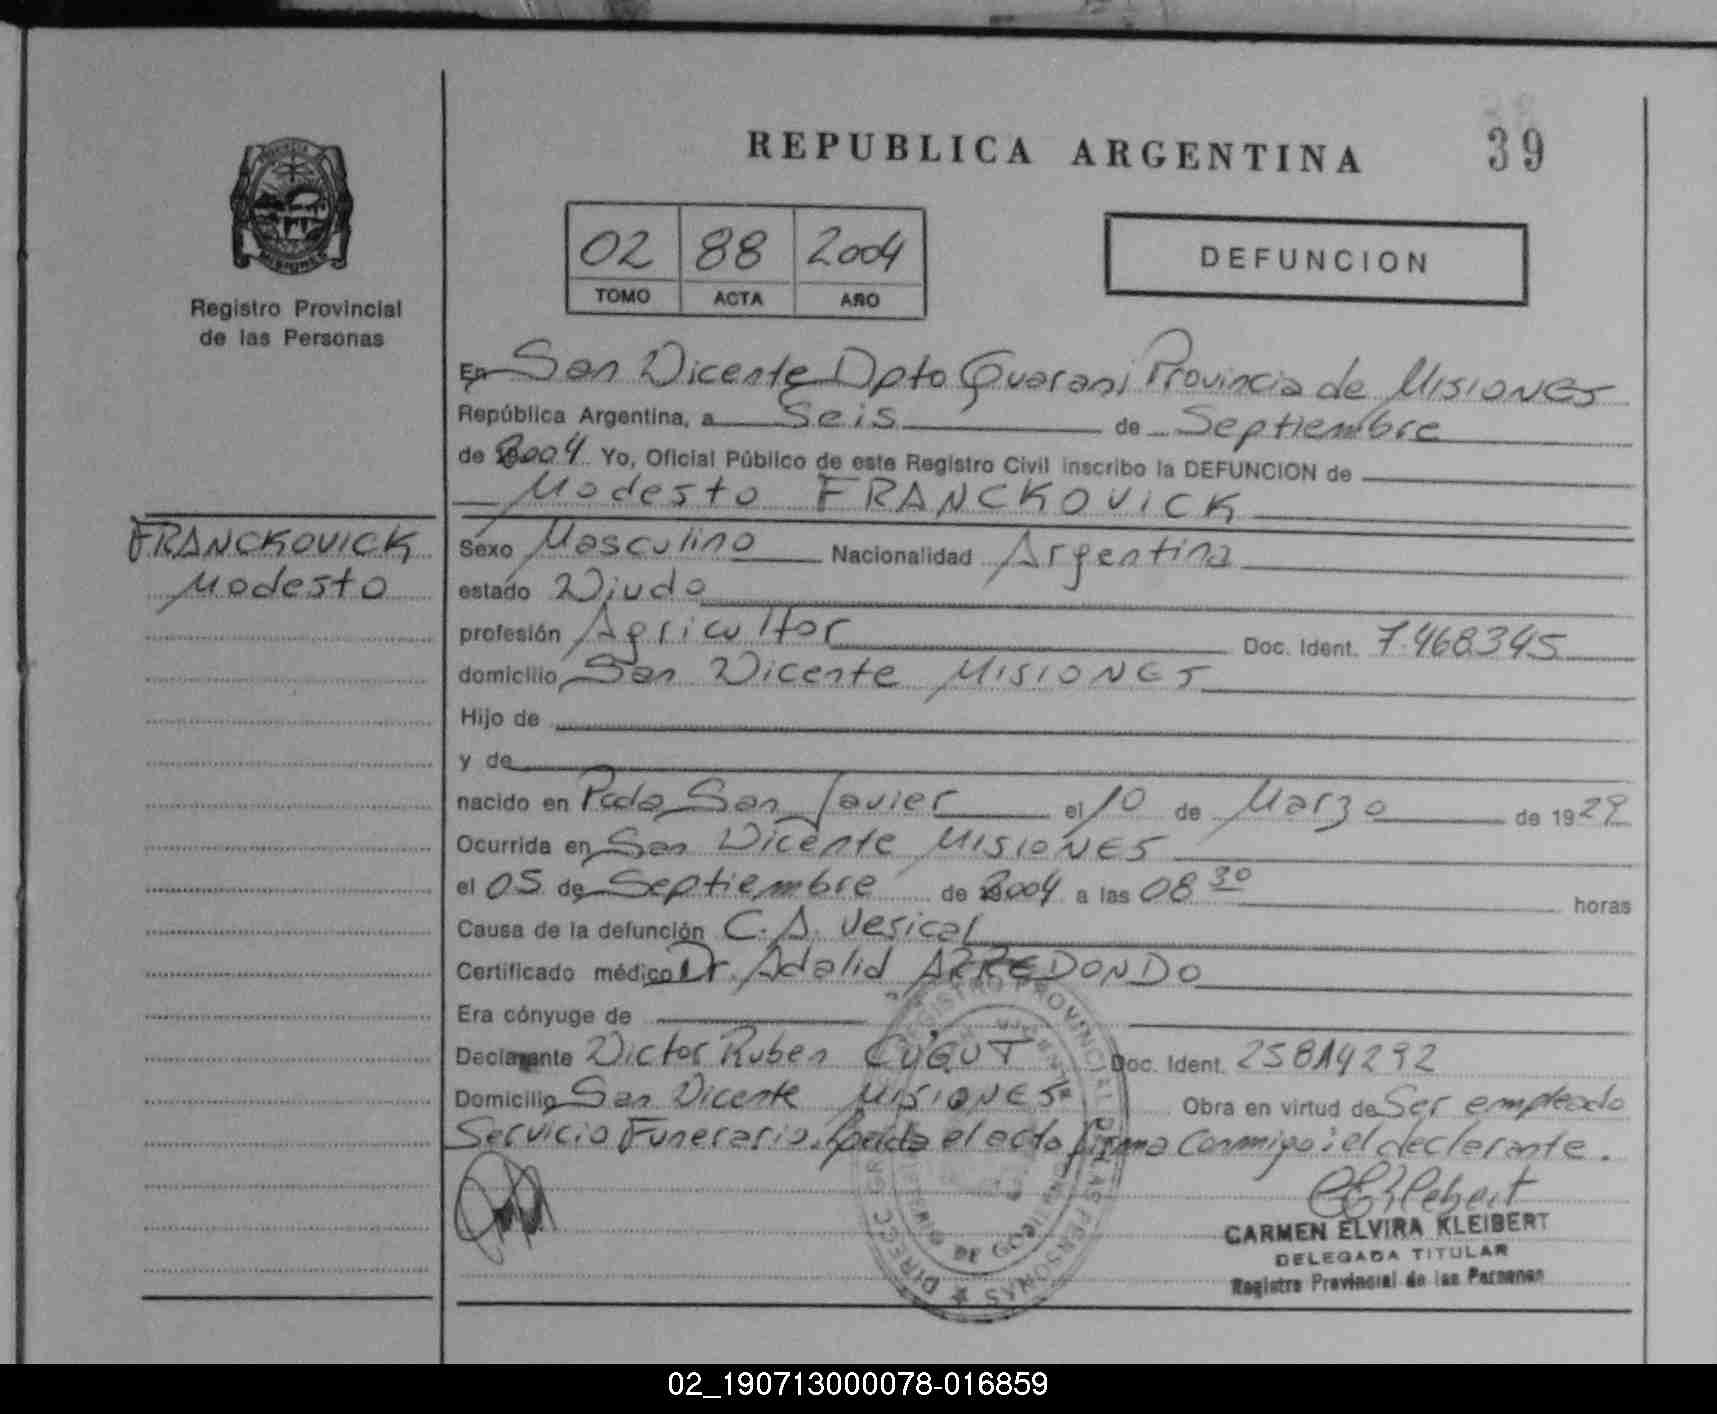 REPUBLICA ARGENTINA 39
Registro Provincial
de las Personas
MISIONES
02 88 2004
TOMO ACTA AÑO
DEFUNCION
En San Vicente Dpto Guarani Provincia de MISIONES
República Argentina, a Seis de Septiembre
de 2004 Yo, Oficial Público de este Registro Civil inscribo la DEFUNCION de
Modesto FRANCKOVICK
FRANCKOVICK
Modesto
Sexo Masculino Nacionalidad Argentina
estado Viudo
profesión Agricultor Doc. Ident. 7.468.345
domicilio San Vicente MISIONES
Hijo de
y de
nacido en Pcda San Javier el 10 de Marzo de 1929
Ocurrida en San Vicente MISIONES
el 05 de Septiembre de 2004 a las 08 30 horas
Causa de la defunción C.A. Vesical
Certificado médico Dr. Adalid ARREDONDO
Era cónyuge de
Declarante Victor Ruben Doc. Ident. 25814292
Domicilio San Vicente MISIONES Obra en virtud de Ser empleado
Servicio Funerario. Leida el acta firma Conmigo: el declarante.
CARMEN ELVIRA KLEIBERT
DELEGADA TITULAR
Registro Provincial de las Personas
REGISTRO PROVINCIAL DE LAS PERSONAS
02_190713000078-016859